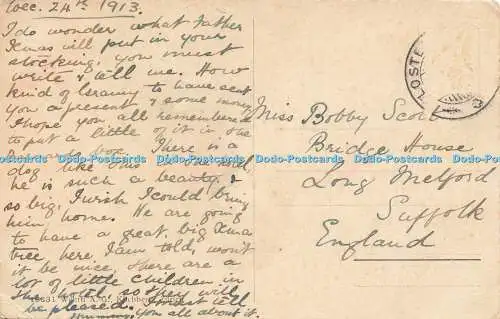 Dec. 24th 1913.
I do wonder what father
Xmas will put in your
stocking, you must
write & tell me. How
kind of Granny to have sent
you a present & some money
I hope you all remembered
to put a little of it in the
box. There is a
dog like this
he is such a beauty &
so big, I wish I could bring
him home. We are going
to have a great big Xmas
tree here, I am told, won't
it be nice, there are a
lot of little children in
the hotel so they will
be pleased. I must tell
you all about it.
Miss Bobby Scott
Bridge House
Long Melford
Suffolk
England
KLOSTE
Dodo-Postcards Dodo-Postcards Dodo-Postcards Dodo-Postcards